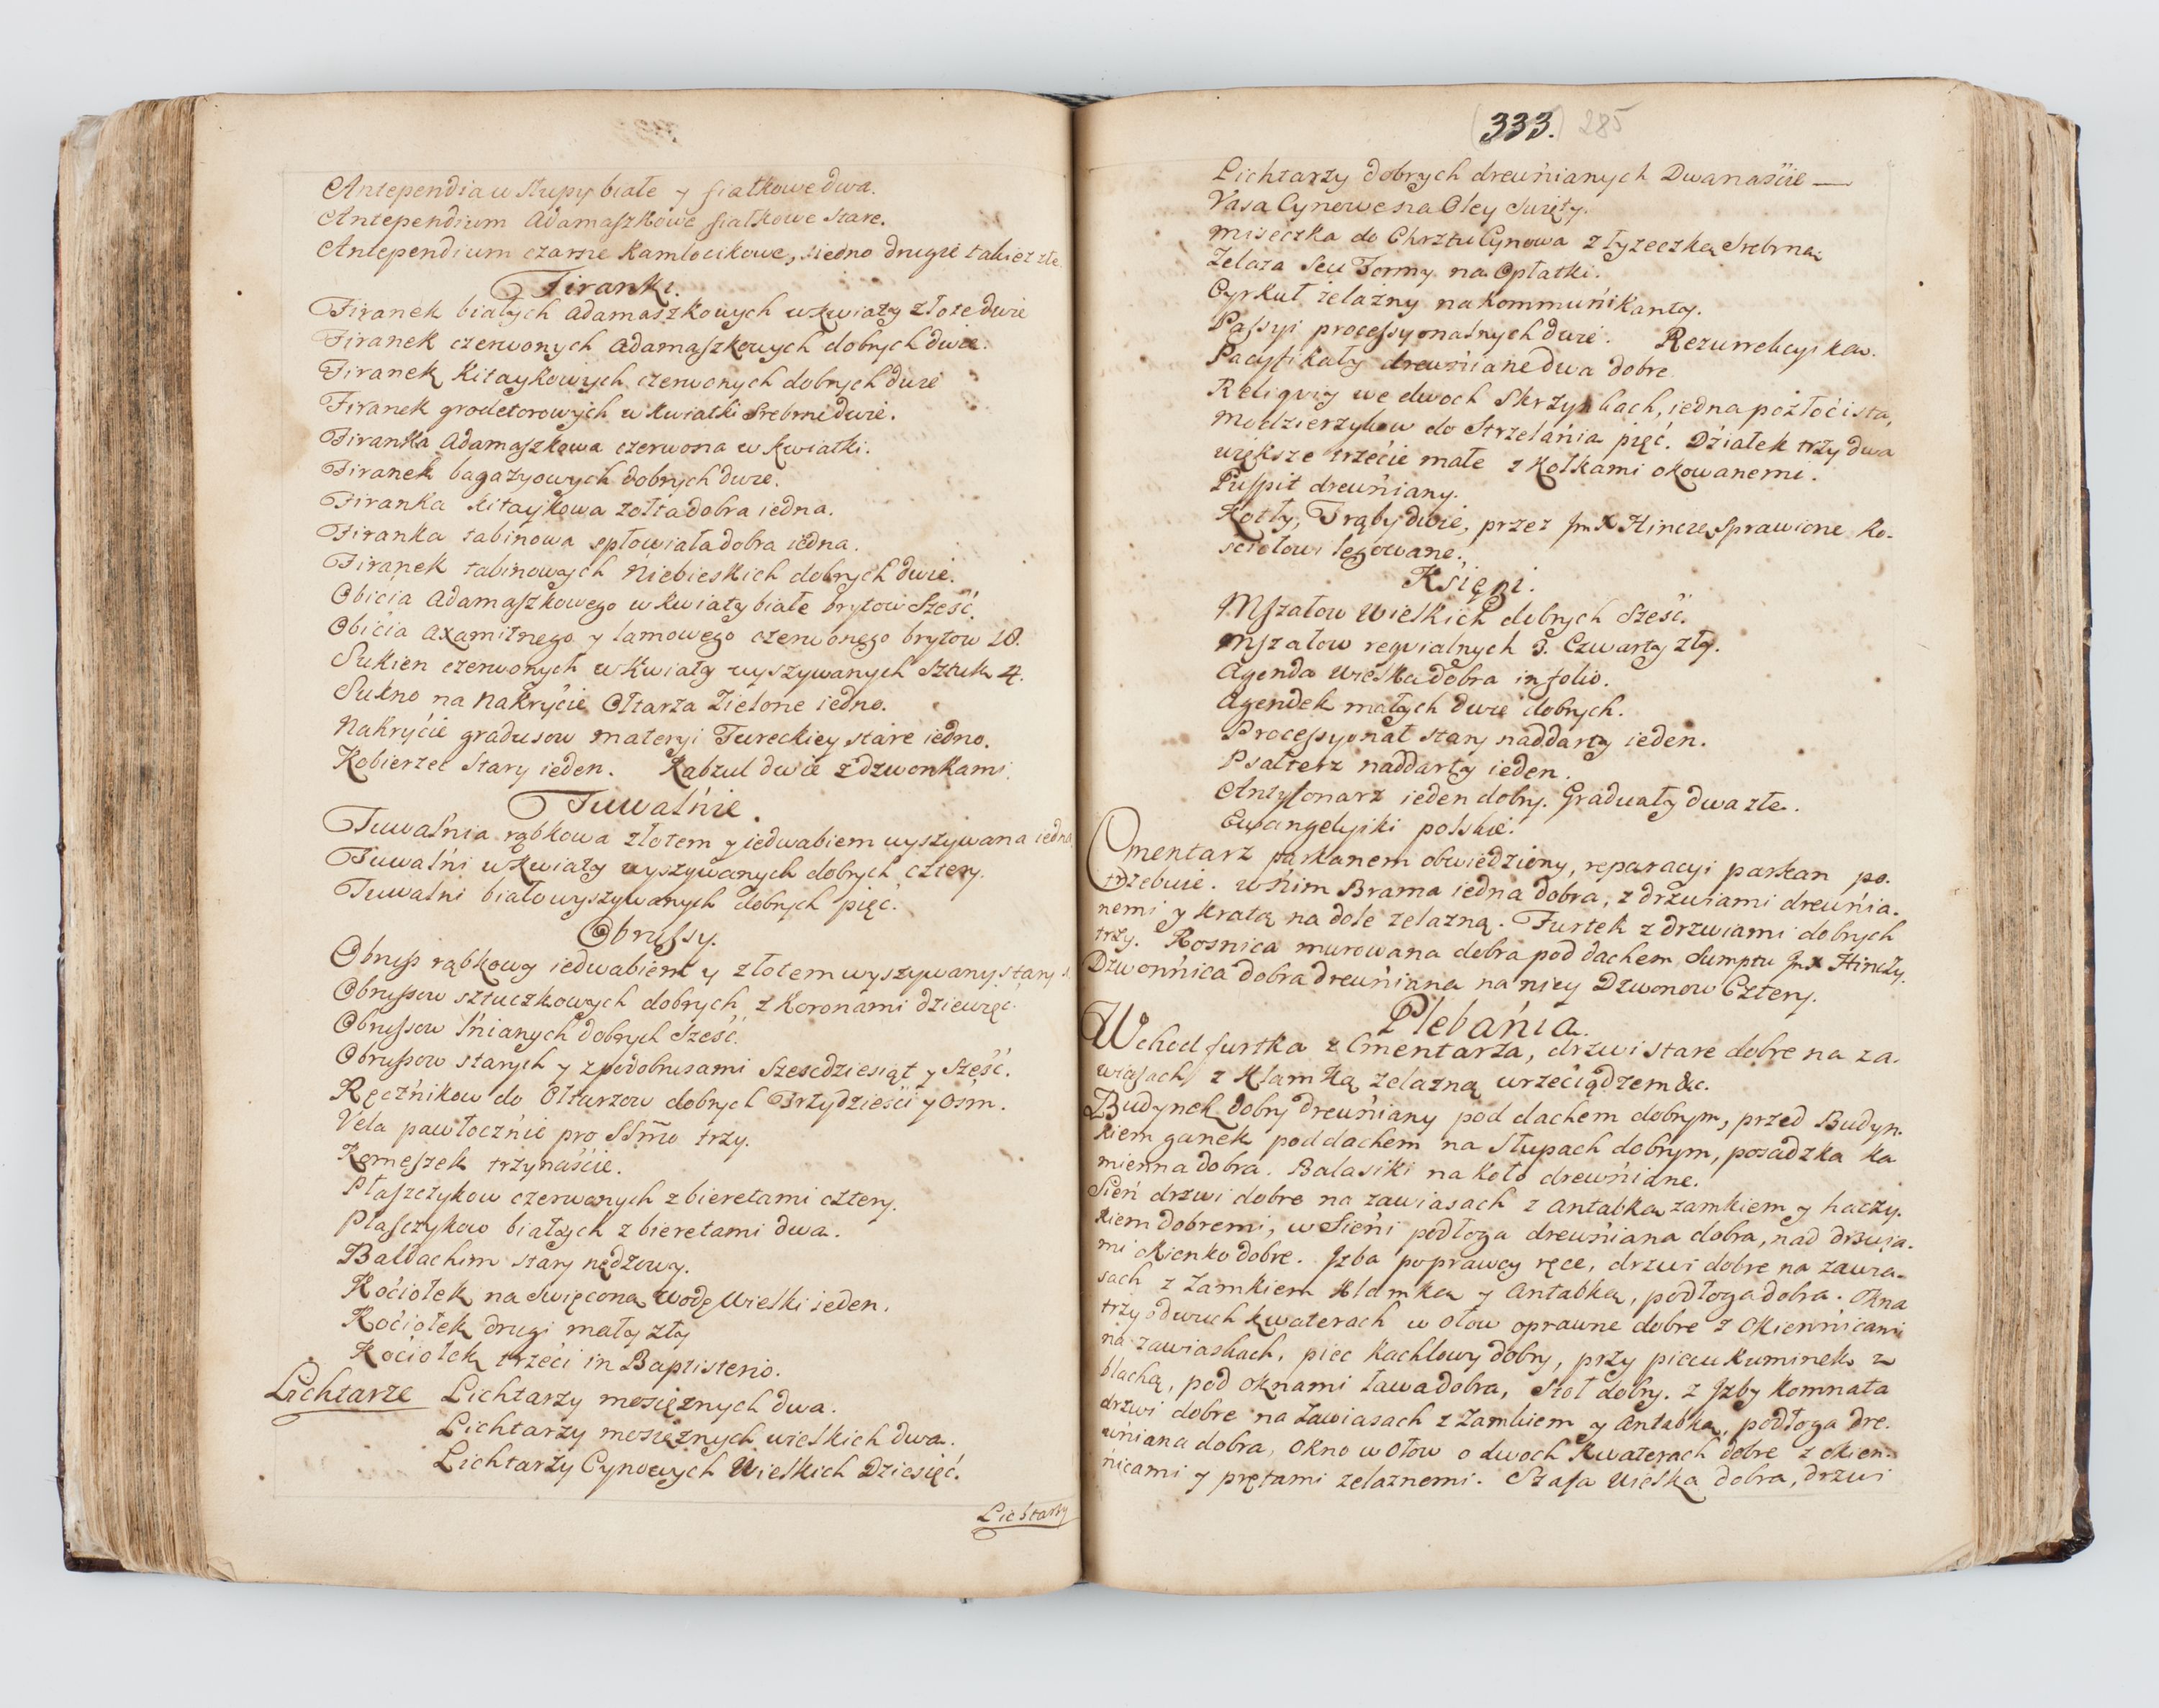 Antependia w słupy białe y fiałkowe dwa.
Antependium Adamaszkowe fiałkowe stare.
Antependium czarne Kamlocikowe, iedno drugie takież złe
Firanki.
Firanek białych Adamaszkowych w kwiaty złote dwie
Firanek czerwonych Adamaszkowych dobrych dwie.
Firanek Kitaykowych czerwonych dobrych dwie
Firanek grodetorowych w kwiatki srebrne dwie.
Firanka Adamaszkowa czerwona w kwiatki.
Firanek bagazyowych dobrych dwie.
Firanka kitaykowa żołta dobra iedna.
Firanka tabinowa spłowiała dobra iedna.
Firanek tabinowych Niebieskich dobrych dwie.
Obicia Adamaszkowego w kwiaty białe brytow Sześć.
Obicia Axamitnego y lamowego czerwonego brytow 18.
Sukien czerwonych w kwiaty wyszywanych Sztuk 4.
Sukno na Nakrycie Ołtarza Zielone iedno.
Nakrycie gradusow materyi Tureckiey stare iedno.
Kobierzec Stary ieden. Kabzul dwie z dzwonkami.
Tuwalnie.
Tuwalnia rąbkowa złotem y iedwabiem wyszywana iedna
Tuwalni w kwiaty wyszywanych dobrych cztery.
Tuwalni biało wyszywanych dobrych pięć.
Obrussy.
Obrus rąbkowy iedwabiem y złotem wyszywany stary
Obrusow sztuczkowych dobrych z Koronami dziewięć.
Obrussow lnianych dobrych Sześć.
Obrusow starych y z podobrusami Szescdziesiąt y sześć.
Ręcznikow do Ołtarzow dobrych Trzydzieści y ośm.
Vela pawłocznie pro SSmo trzy.
Komeszek trzynaście.
Płaszczykow czerwonych z bieretami cztery.
Płaszczykow białych z bieretami dwa.
Baldachim stary nędzowy.
Kociołek na święconą wodę Wielki ieden.
Kociołek drugi mały zły
Kociołek trzeci in Baptisterio.
Lichtarze Lichtarzy mosiężnych dwa.
Lichtarzy mosiężnych wielkich dwa.
Lichtarzy Cynowych Wielkich Dziesięć.
Lichtarzy
(333.) 285
Lichtarzy dobrych drewnianych Dwanaście —
Vasa Cynowe na Oley Święty.
Miseczka do Chrztu Cynowa z łyżeczką Srebrną
Zelaza Seu Formy na Opłatki.
Cyrkuł żelazny na Kommunikanty.
Passyi processyonalnych dwie. Rezurrekcyika.
Pacyfikały drewniane dwa dobre.
Religviy we dwoch Skrzynkach, iedna pozłocista,
Mozdzierzykow do Strzelania pięć. Działek trzy dwa
większe trzecie małe z Kołkami okowanemi.
Pulpit drewniany.
Kotły, Trąby dwie, przez Jm X Hincze Sprawione Ko-
sciołowi legowane.
Księgi.
Mszałow Wielkich dobrych Sześć.
Mszałow reqvialnych 3. Czwarty zły.
Agenda wielka dobra in folio.
Agendek małych dwie dobrych.
Processyonał stary naddarty ieden.
Psałterz naddarty ieden.
Antyfonarz ieden dobry. Graduały dwa złe.
Ewangelyiki polskie.
Cmentarz parkanem obwiedziony, reparacyi parkan po-
trzebuie. w nim Brama iedna dobra, z drzwiami drewnia-
nemi y kratą na dole zelazną. Furtek z drzwiami dobrych
trzy. Kosnica murowana dobra pod dachem Sumptu Jm X Hinczy.
Dzwonnica dobra drewniana na niey Dzwonow Cztery.
Plebania.
Wchod furtka z Cmentarza, drzwi stare dobre na za-
wiasach z Klamką zelazną wrzeciądzem &c.
Budynek dobry drewniany pod dachem dobrym, przed Budyn-
kiem ganek pod dachem na Słupach dobrym, posadzka ka
mienna dobra. Balasiki na koło drewniane.
Sień drzwi dobre na zawiasach z antabką zamkiem y haczy-
kiem dobremi, w Sieni podłoga drewniana dobra, nad drzwia-
mi okienko dobre. Izba po prawey ręce, drzwi dobre na zawia-
sach z Zamkiem Klamką y Antabką, podłoga dobra. Okna
trzy o dwuch kwaterach w ołow oprawne dobre z okiennicami
na zawiaskach, piec kachlowy dobry, przy piecu kuminek z
blachą, pod oknami ława dobra, Stoł dobry. z Izby Komnata
drzwi dobre na zawiasach z Zamkiem y Antabką, podłoga dre-
wniana dobra, okno w ołow o dwoch kwaterach dobre z okien-
nicami y prętami zelaznemi. Szafa wielka dobra, drzwi